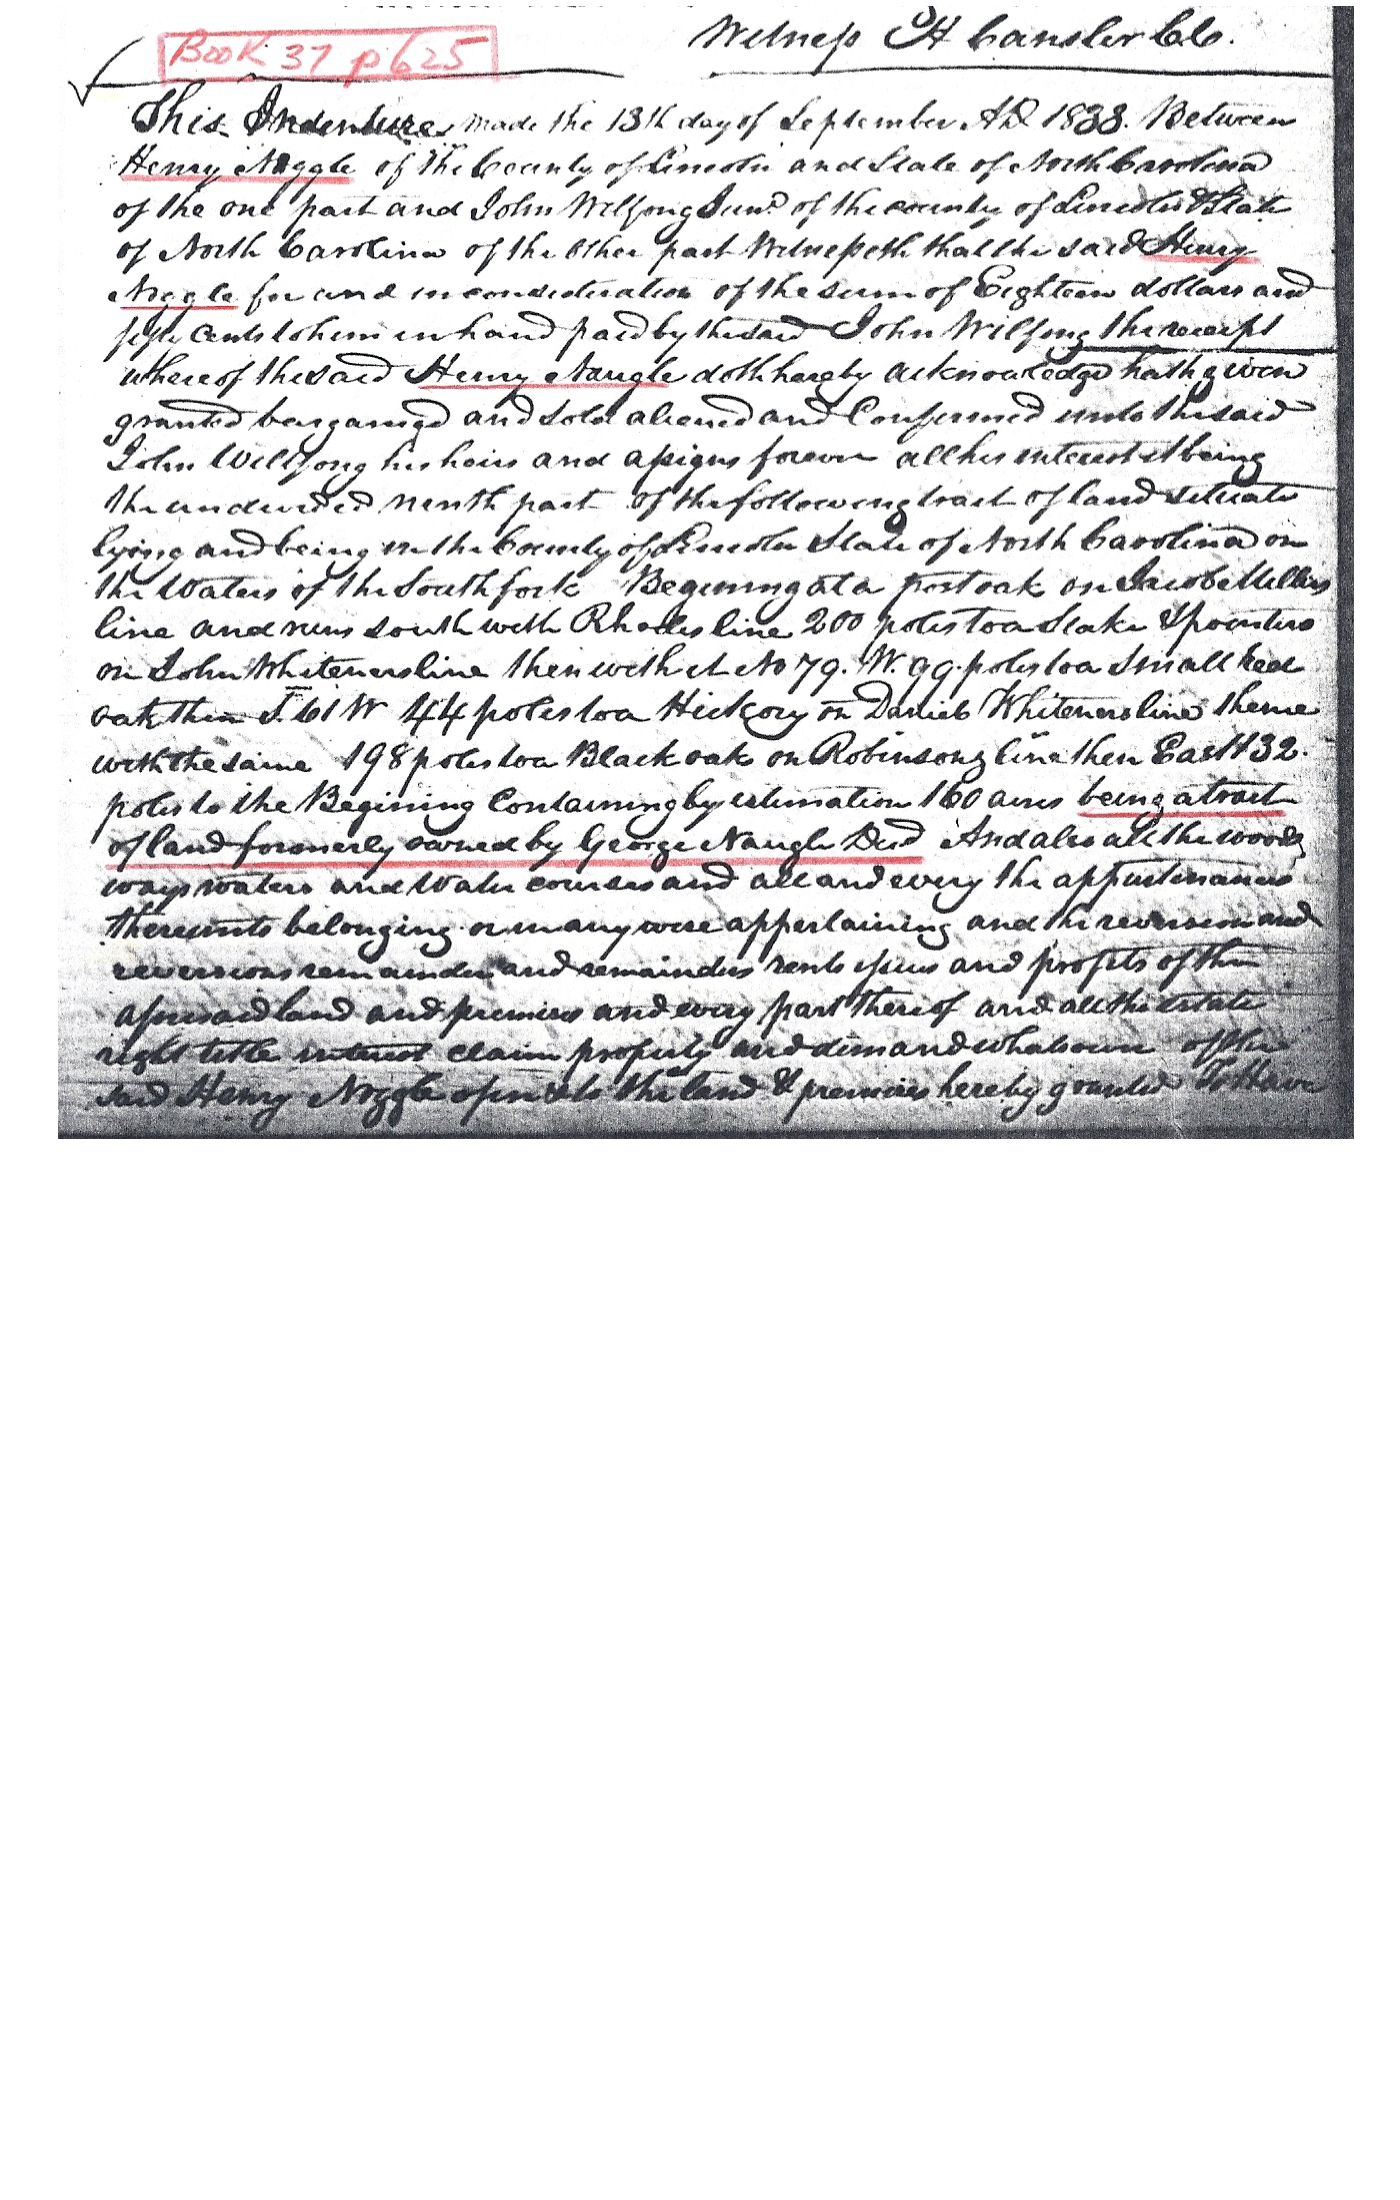 Book 37 p 625
Witness H Cansler Clk.
This Indenture made the 13th day of September AD 1833. Between
Henry Noggle of the County of Lincoln and State of North Carolina
of the one part and John Wilfong Junr. of the county of Lincoln & State
of North Carolina of the other part Witnesseth that the said Henry
Noggle for and in consideration of the sum of Eighteen dollars and
fifty cents to him in hand paid by the said John Wilfong the receipt
whereof the said Henry Naugle doth hereby acknowledge hath given
granted bargained and sold aliened and Confirmed unto the said
John Wilfong his heirs and assigns forever all his interest it being
the undivided ninth part of the following tract of land situate
lying and being in the County of Lincoln State of North Carolina on
the Waters of the South fork Begining at a post oak on Jacob Millers
line and runs south with Rhodes line 200 poles to a Stake & pointers
on John Whiteners line then with it No 79. W. 99 poles to a Small Red
oak then S. 61 W 44 poles to a Hickory on Daniel Whiteners line thence
with the same 198 poles to a Black oak on Robinsons line then East 132.
poles to the Begining Containing by estimation 160 acres being a tract
of land formerly owned by George Naugle Decd And also all the woods
ways waters and Water courses and all and every the appurtenances
thereunto belonging or in any wise appertaining and the reversion and
reversions remainder and remainders rents issues and profits of the
aforesaid land and premises and every part thereof and all the estate
right title interest claim property and demand whatsoever of the
said Henry Noggle of in & to the land & premises hereby granted To Have